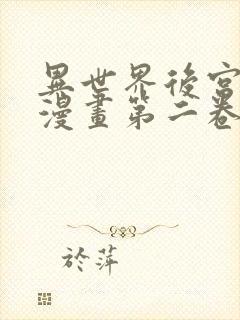 異世界後宮
漫畫第二卷
於萍